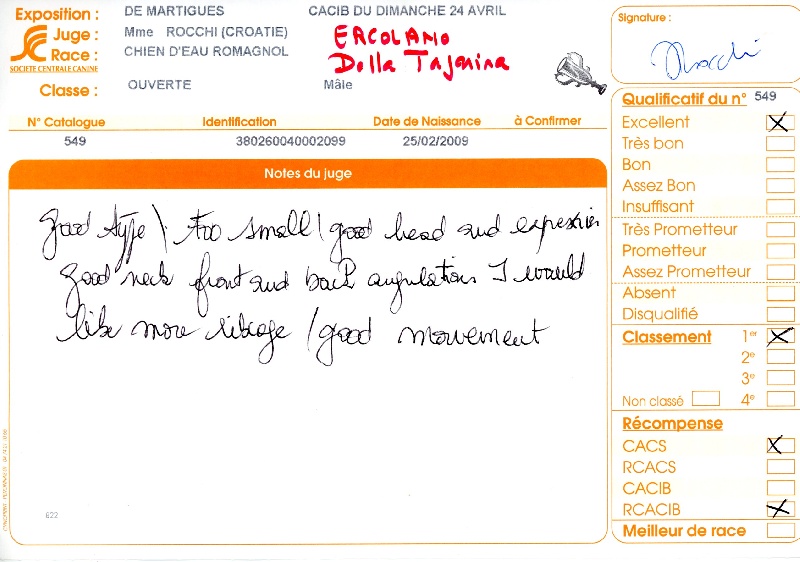 Exposition : DE MARTIGUES CACIB DU DIMANCHE 24 AVRIL
Juge : Mme ROCCHI (CROATIE)
Race : CHIEN D'EAU ROMAGNOL
SOCIÉTÉ CENTRALE CANINE
Classe : OUVERTE Mâle
ERCOLANO
Della Tajonina
N° Catalogue Identification Date de Naissance à Confirmer
549 380260040002099 25/02/2009
Notes du juge
good type \ too small / good head and expression
good neck front and back angulations I would
like more ribcage / good movement
622
Signature :
Rocchi
Qualificatif du n° 549
Excellent X
Très bon
Bon
Assez Bon
Insuffisant
Très Prometteur
Prometteur
Assez Prometteur
Absent
Disqualifié
Classement 1er X
2e
3e
Non classé 4e
Récompense
CACS X
RCACS
CACIB
RCACIB X
Meilleur de race